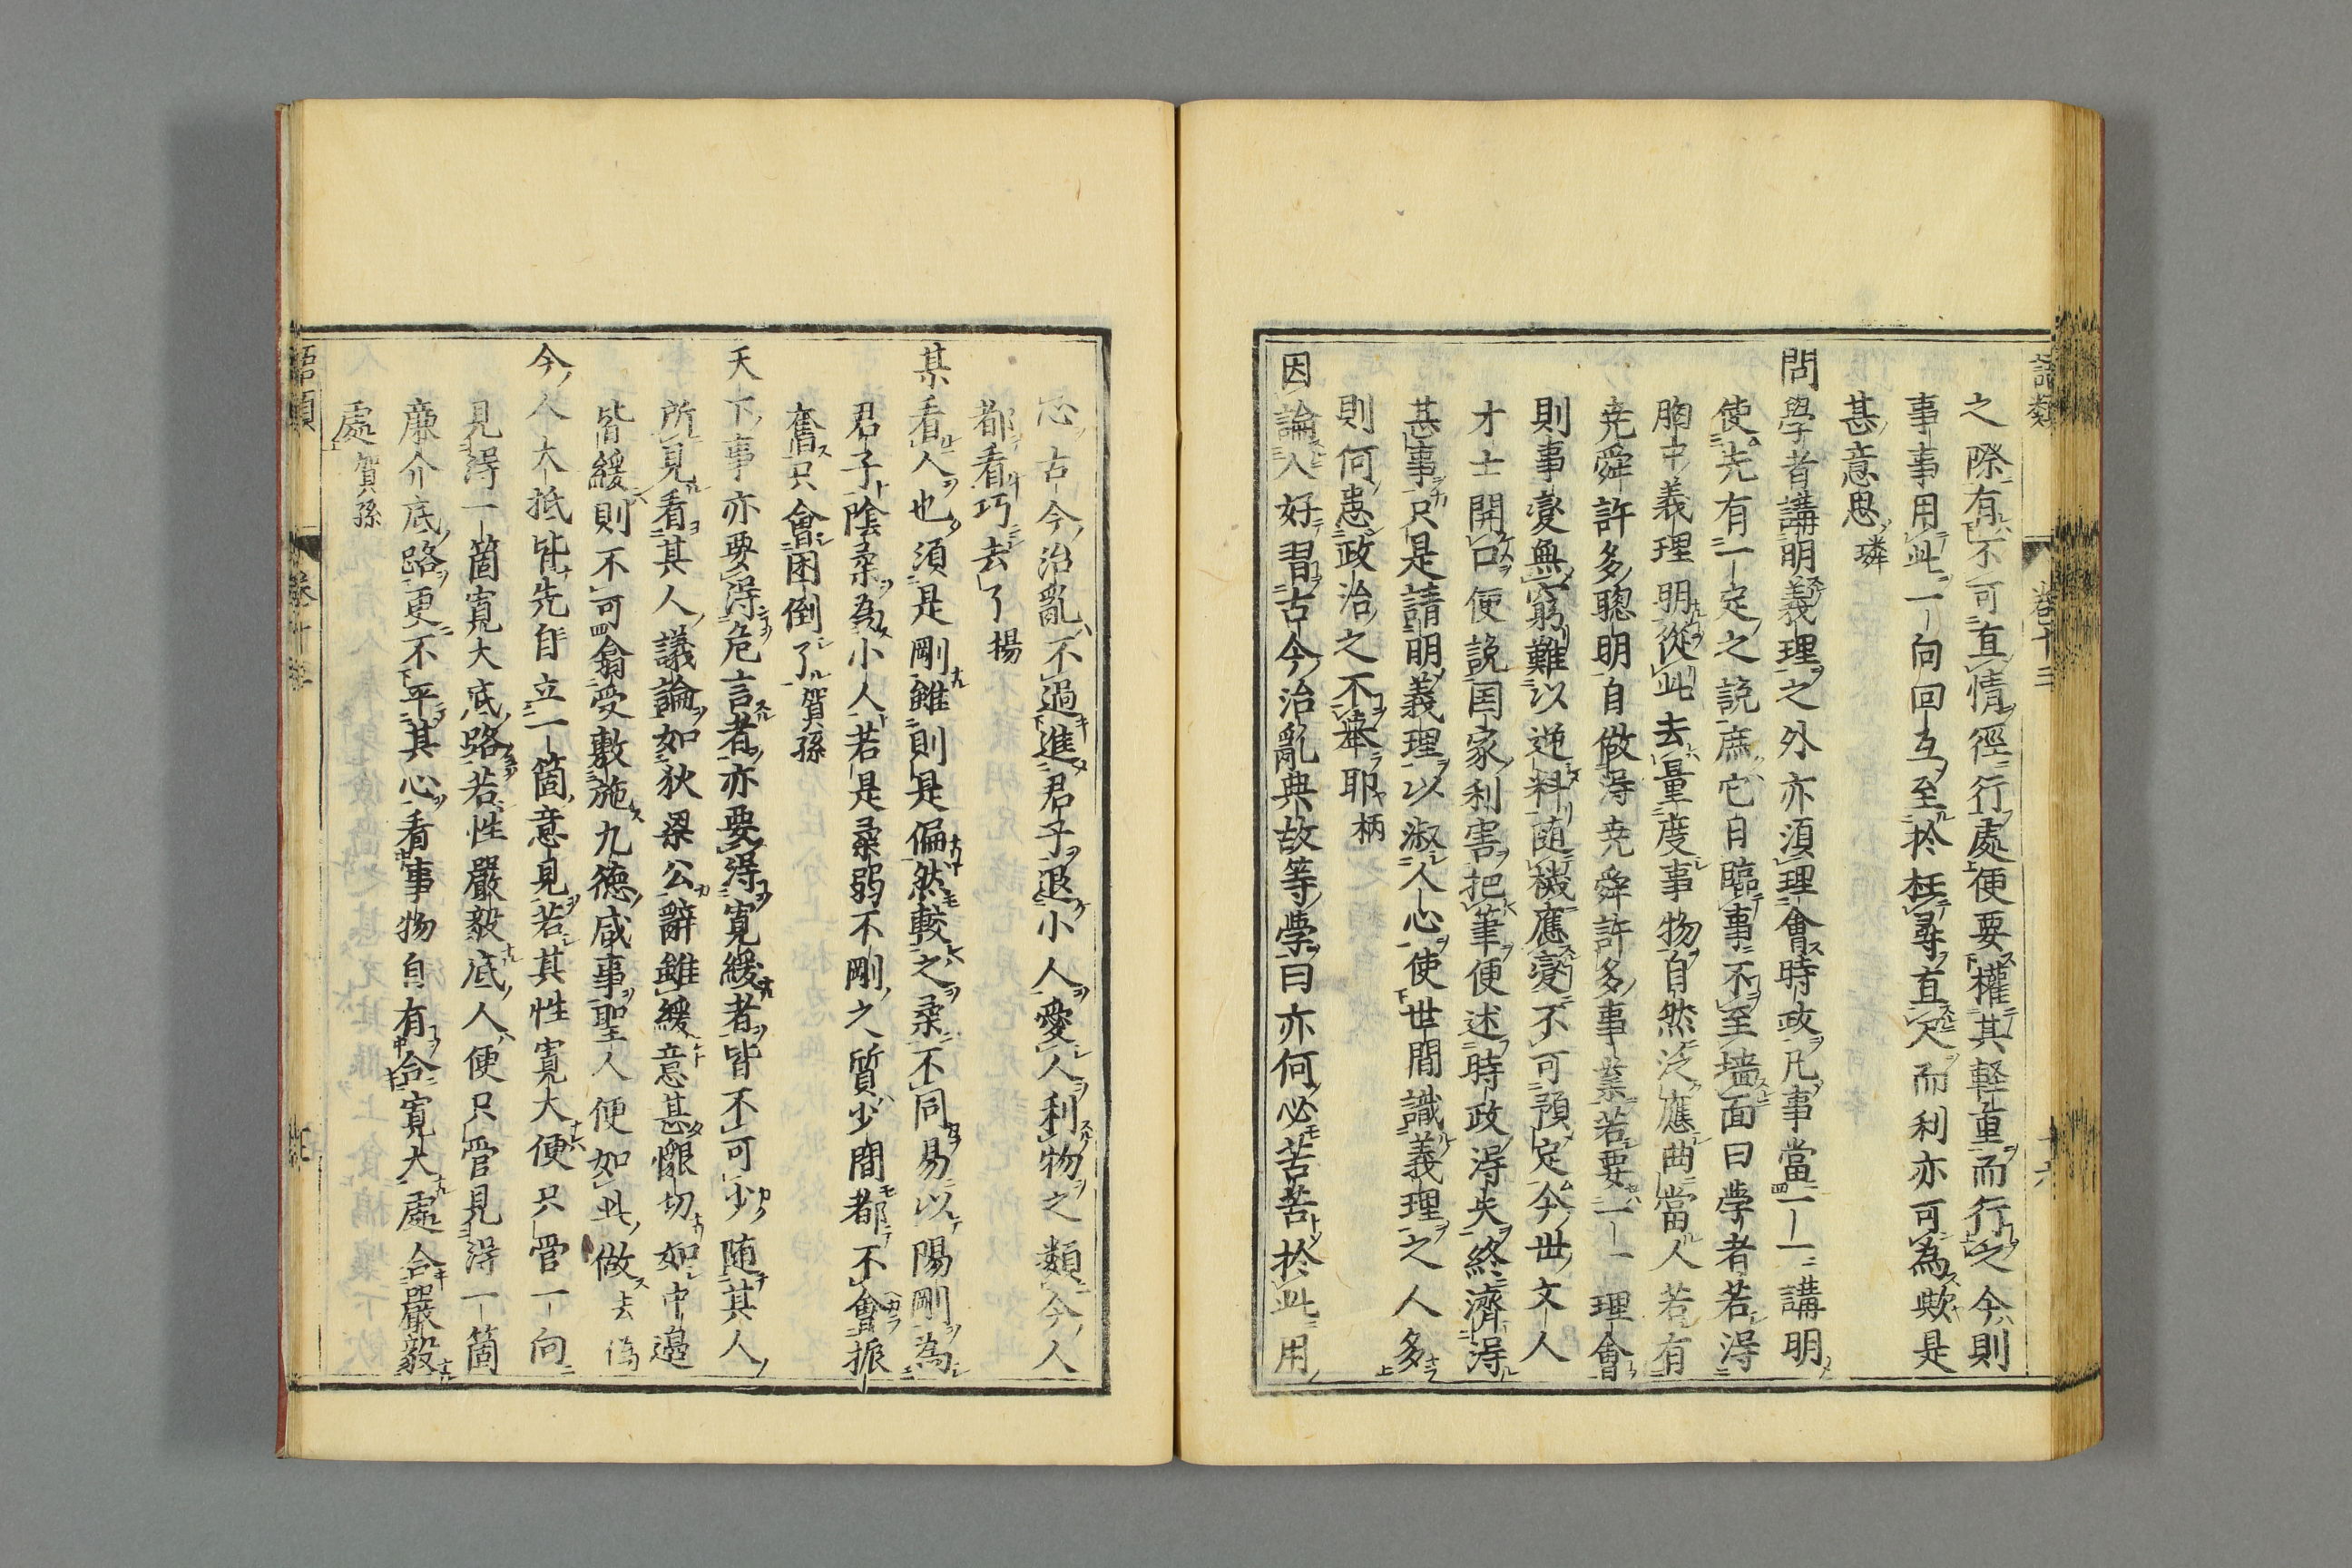 語類 卷十三 十六
之際有不可直情徑行處便要權其輕重而行之今則
事事用此一向回互至於枉尋直尺而利亦可為歟是
甚意思 璘
問學者講明義理之外亦須理會時政凡事當一一講明
使先有一定之說庶它日臨事不至墻面曰學者若得
胸中義理明從此去量度事物自然泛應曲當人若有
尭舜許多聰明自做得尭舜許多事業若要一一理會
則事變無窮難以逆料随機應變不可預定今世文人
才士開口便說囯家利害把筆便述時政得失終濟得
甚事只是講明義理以淑人心使世間識義理之人多
則何患政治之不舉耶 柄
因論人好習古今治亂典故等學曰亦何必苦苦於此用
心古今治亂不過進君子退小人愛人利物之類今人
都看巧去了 揚
某看人也須是剛雖則是偏然較之柔不同易以陽剛為
君子陰柔為小人若是柔弱不剛之質少間都不會振
奮只會困倒了 賀孫
天下事亦要得危言者亦要得寬緩者皆不可少随其人
所見看其人議論如狄梁公辭雖緩意甚懇切如中邉
皆緩則不可翕受敷施九德咸事聖人便如此做 去偽
今人大抵皆先自立一箇意見若其性寬大便只管一向
見得一箇寬大底路若性嚴毅底人便只管見得一箇
廉介底路更不平其心看事物自有合寬大處合嚴毅
處 賀孫
語類 卷十三